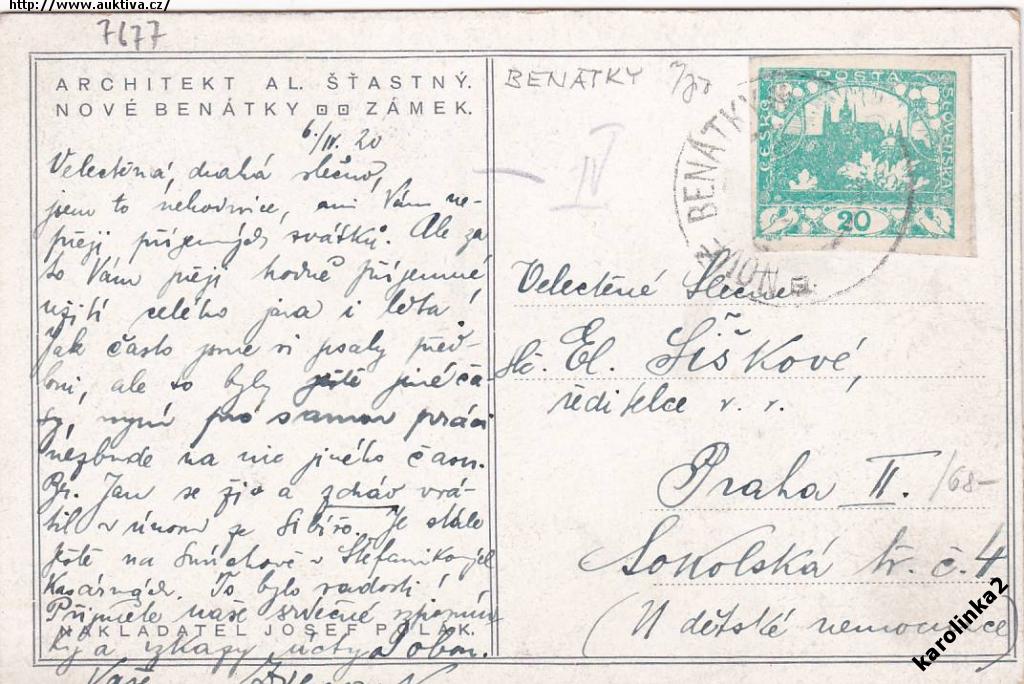 http://www.auktiva.cz/
7677
ARCHITEKT AL. ŠŤASTNÝ.
NOVÉ BENÁTKY ZÁMEK.
6./IV. 20
Velectěná, drahá slečno,
jsem to nehodnice, ani Vám ne-
přeji příjemných svátků. Ale za
to Vám přeji hodně příjemné
užití celého jara i léta!
Jak často jsme si psaly před-
loni, ale to byly ještě jiné ča-
sy, nyní pro samou práci
nezbude na nic jiného času.
Br. Jan se živ a zdráv vrá-
til v únoru ze Sibiře. Je stále
ještě na Smíchově v Štefanikových
Kasárnách. To bylo radosti!
Přijměte naše srdečné vzpomín
ky a vzkazy úcty a obou.
NAKLADATEL JOSEF POLÁK.
Vaše
BENÁTKY
IV
POSTA
ČESKO
SLOVENSKÁ
20
BENÁTKY
Velectěné Slečně
Sl. El. Šiškové,
ředitelce v. v.
Praha II.
/68-
Sokolská tř. č. 4
(U dětské nemocnice)
karolinka2